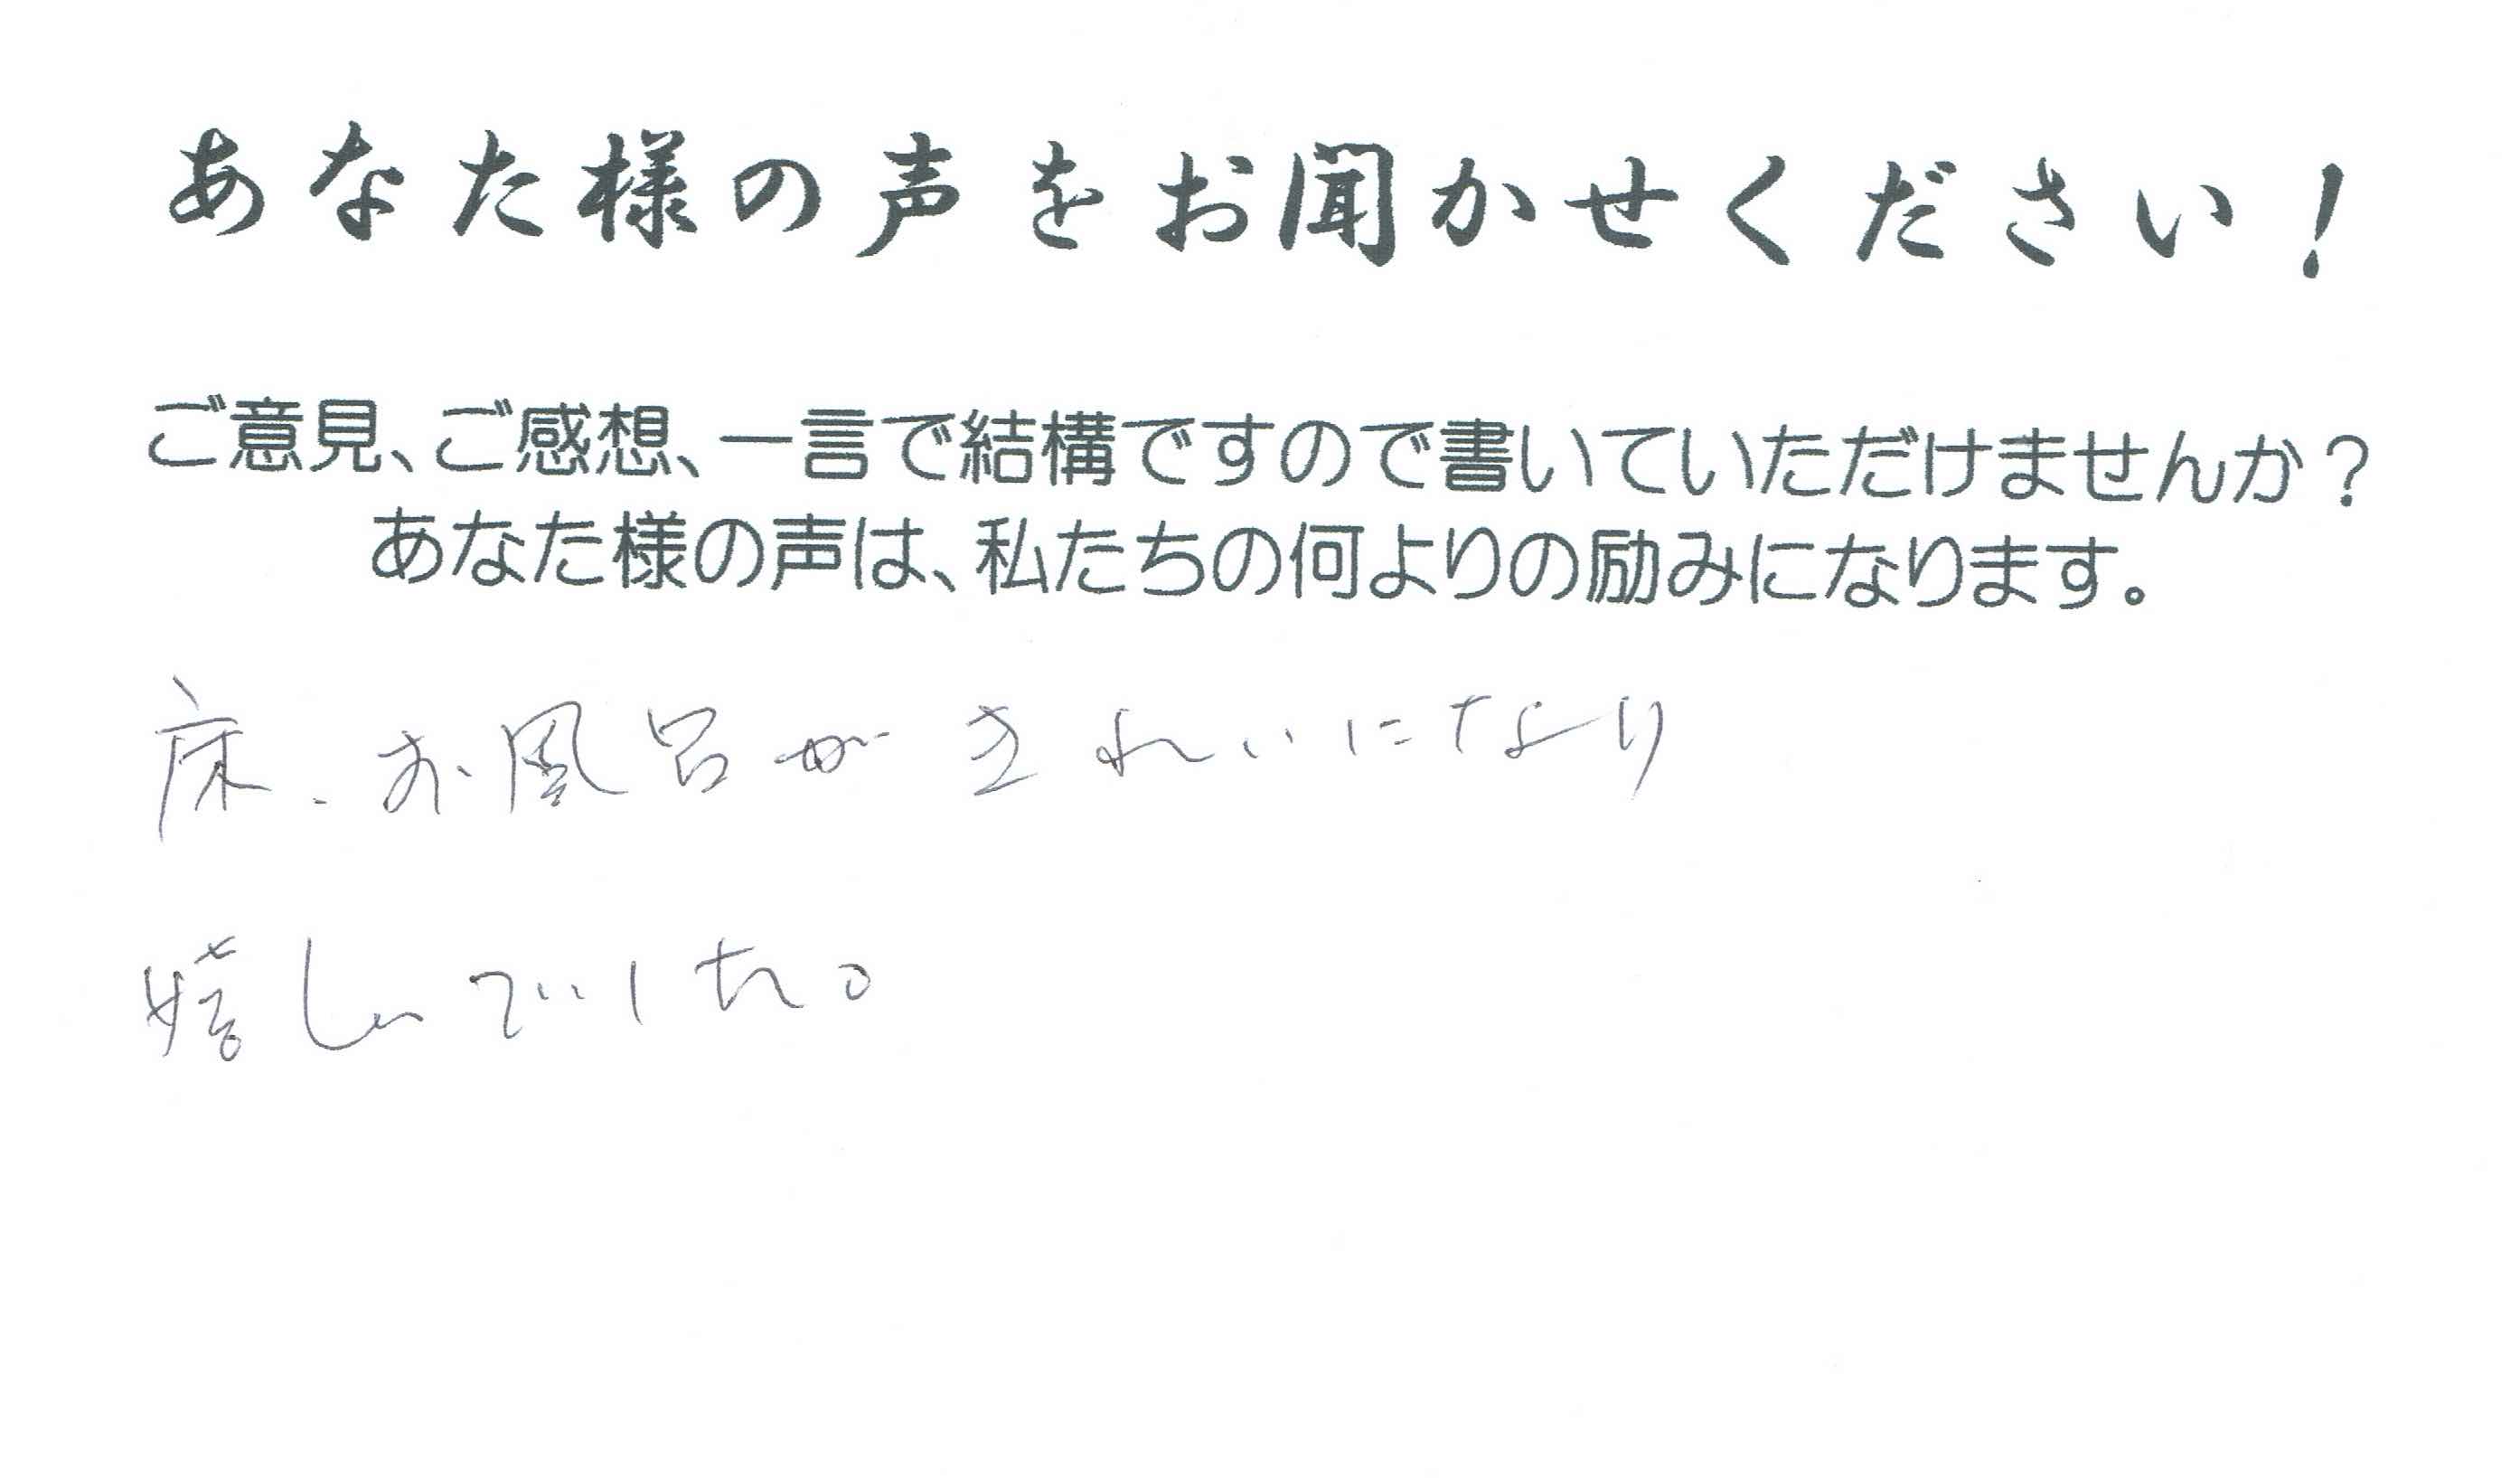 あなた様の声をお聞かせください！
ご意見、ご感想、一言で結構ですので書いていただけませんか？
あなた様の声は、私たちの何よりの励みになります。
床、お風呂がきれいになり
嬉しいでした。